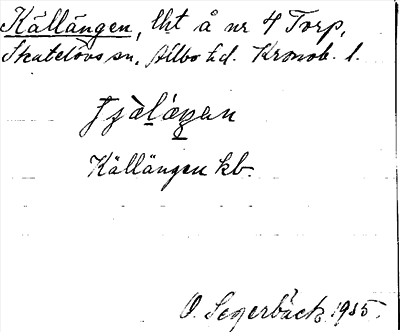 Källängen, lht å nr 4 Torp,
Skatelövs sn, Allbo hd. Kronob. l.
Källängen kb.
O. Segerbäck 1915.